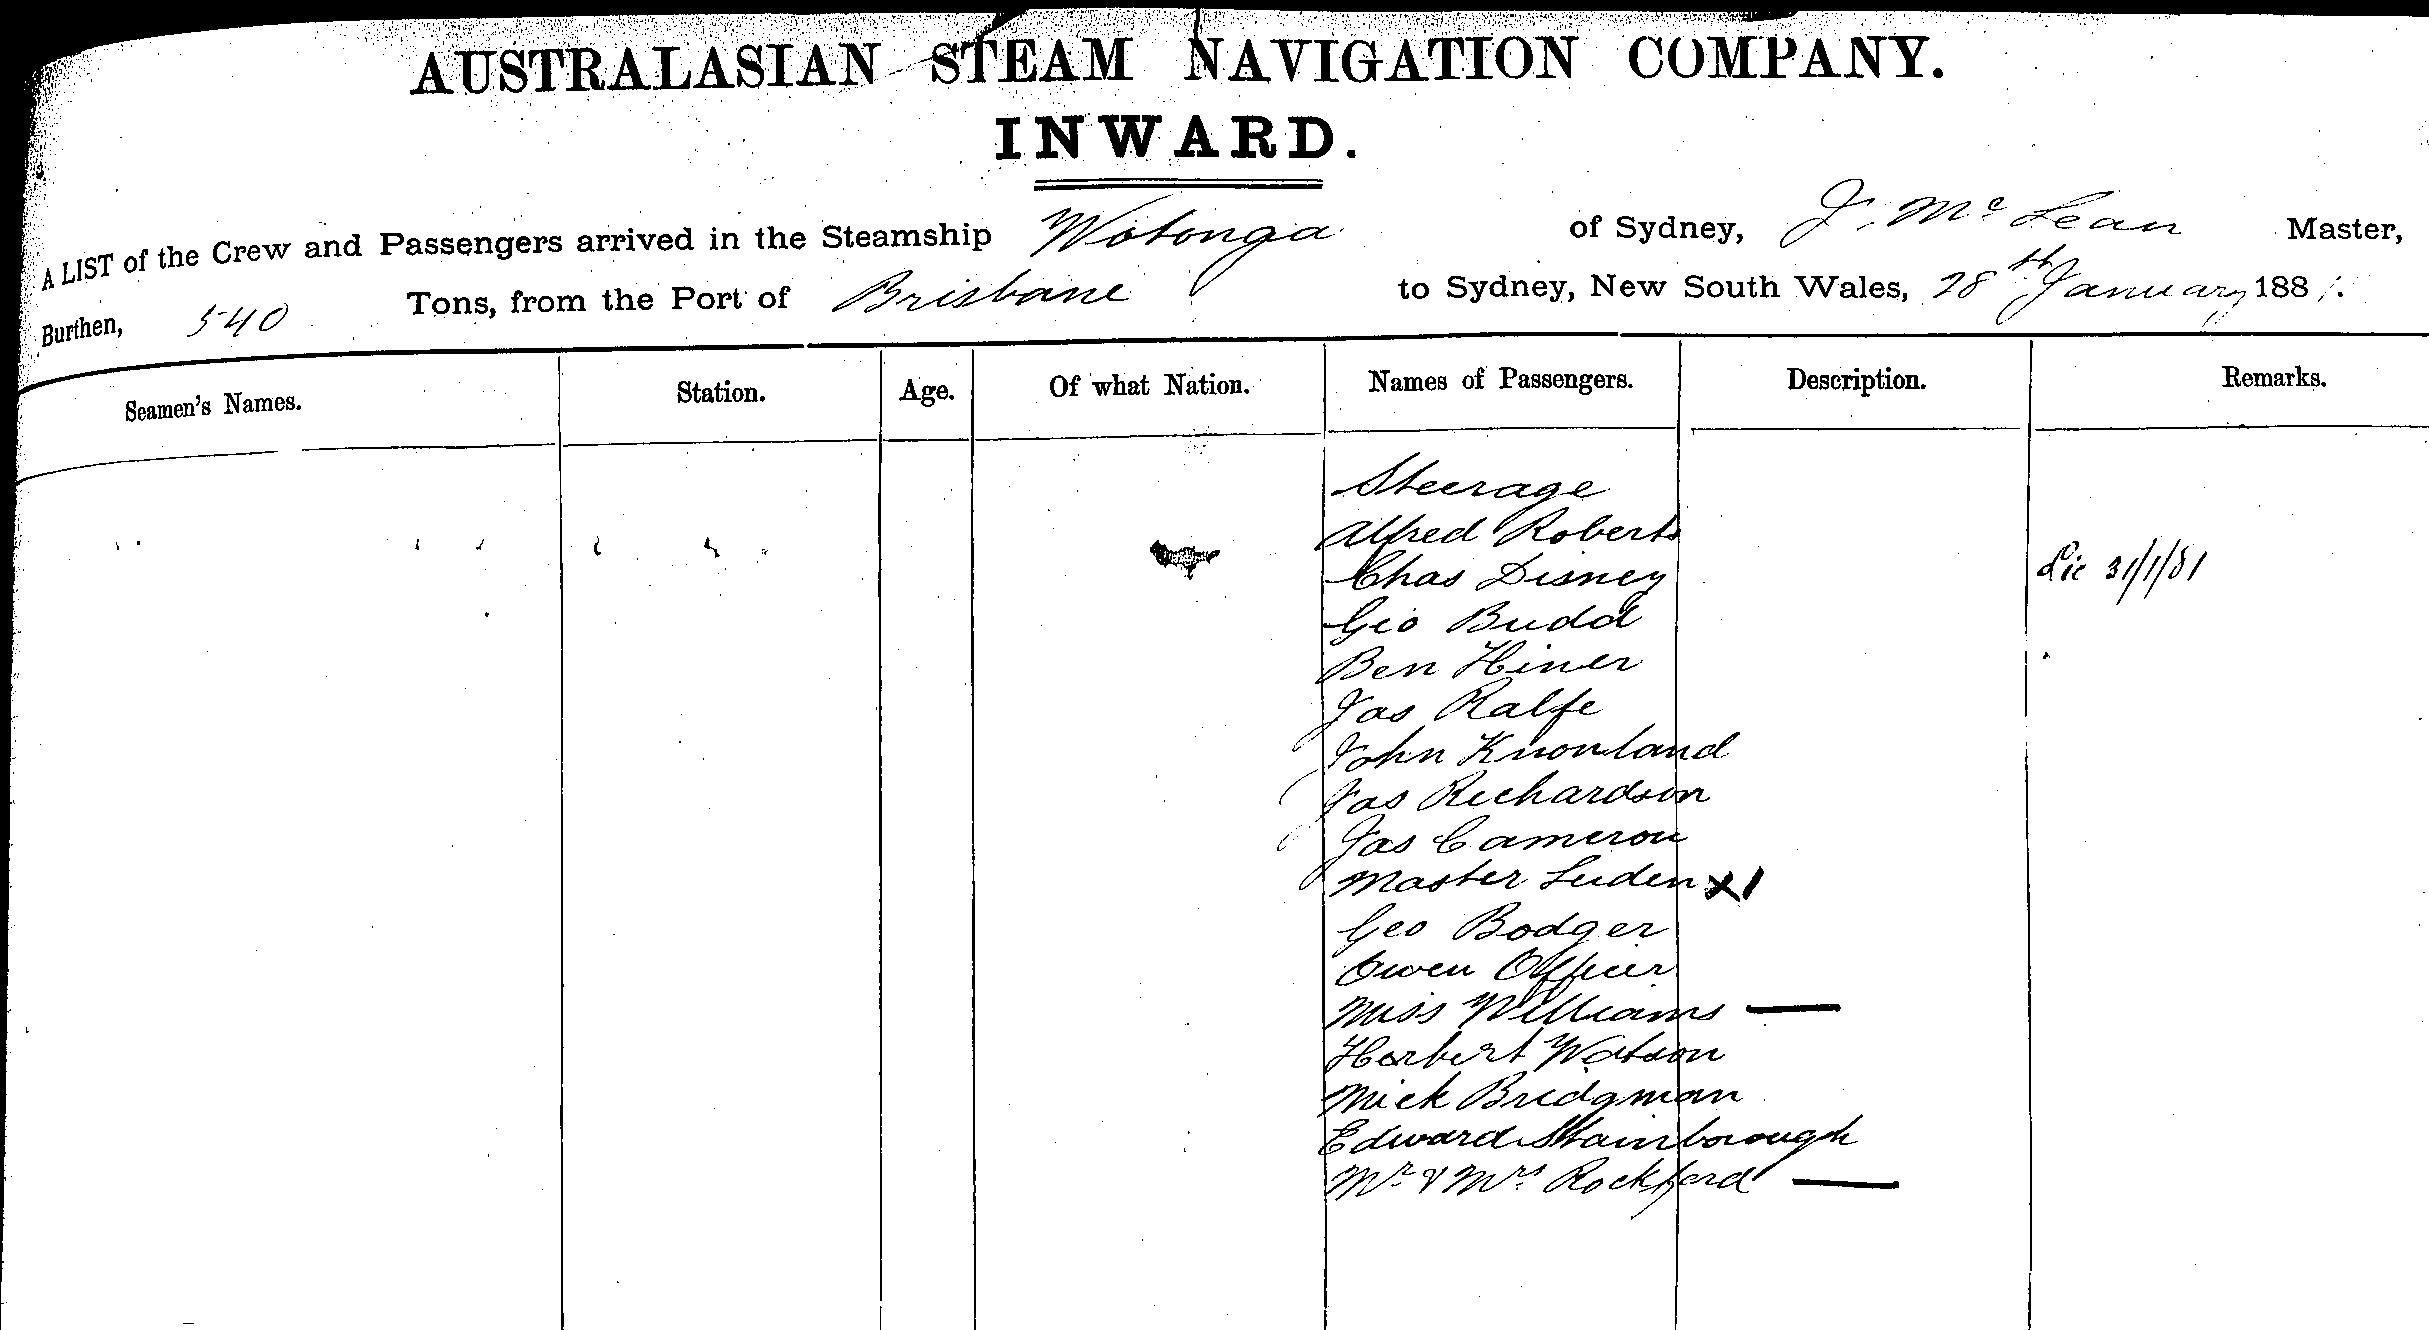 AUSTRALASIAN STEAM NAVIGATION COMPANY.
INWARD.
A LIST of the Crew and Passengers arrived in the Steamship Wotonga of Sydney, J. Mc Lean Master,
Burthen, 540 Tons, from the Port of Brisbane to Sydney, New South Wales, 28th January 1881.
Seamen's Names. Station. Age. Of what Nation. Names of Passengers. Description. Remarks.
Steerage
Alfred Roberts
Chas Disney Lic 31/1/81
Geo Budd
Ben Hiner
Jas Ralfe
John Knowland
Jas Richardson
Jas Cameron
Master Luden X1
Geo Bodger
Owen Officer
Miss Williams —
Herbert Watson
Mick Bridgman
Edward Stainborough
Mr & Mrs Rockford —